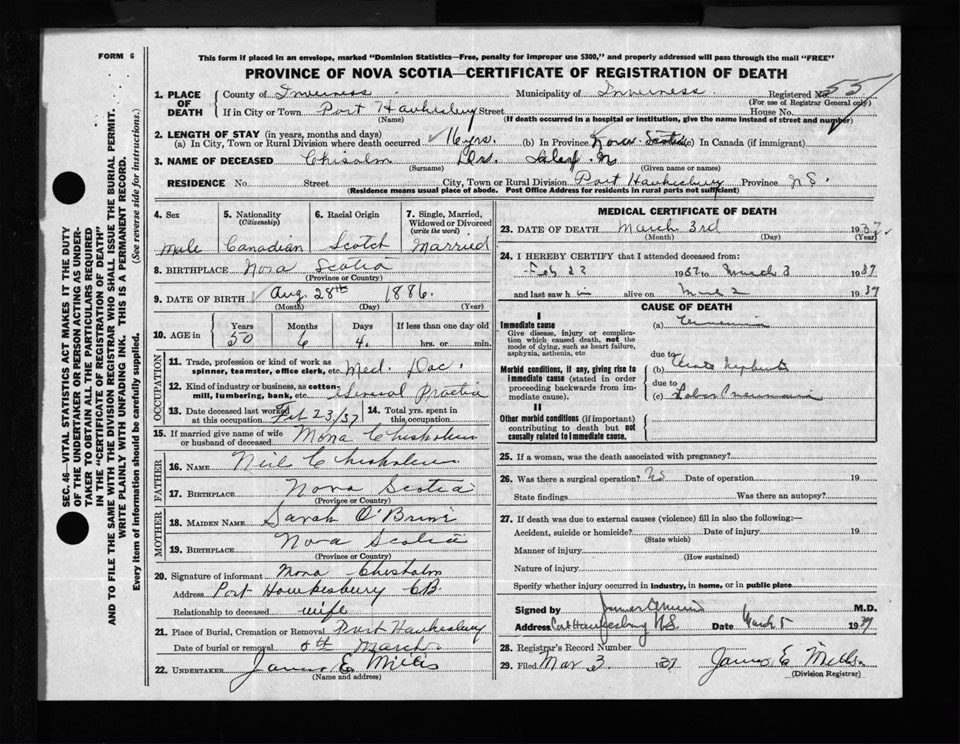 FORM 6
This form if placed in an envelope, marked "Dominion Statistics—Free, penalty for improper use $300," and properly addressed will pass through the mail "FREE"
PROVINCE OF NOVA SCOTIA—CERTIFICATE OF REGISTRATION OF DEATH
1. PLACE OF DEATH
County of Inverness Municipality of Inverness Registered No. 55
(For use of Registrar General only)
If in City or Town Port Hawkesbury Street House No.
(Name) (If death occurred in a hospital or institution, give the name instead of street and number)
2. LENGTH OF STAY (in years, months and days)
(a) In City, Town or Rural Division where death occurred 16 yrs. (b) In Province Nova Scotia (c) In Canada (if immigrant)
3. NAME OF DECEASED Chisolm Drs.
(Surname) (Given name or names)
RESIDENCE No. Street City, Town or Rural Division Port Hawkesbury Province N.S.
(Residence means usual place of abode. Post Office Address for residents in rural parts not sufficient)
4. Sex Male
5. Nationality (Citizenship) Canadian
6. Racial Origin Scotch
7. Single, Married, Widowed or Divorced (write the word) Married
8. BIRTHPLACE Nova Scotia
(Province or Country)
9. DATE OF BIRTH Aug. 28th 1886.
(Month) (Day) (Year)
10. AGE in Years 50 Months 6 Days 4. If less than one day old hrs. or min.
OCCUPATION
11. Trade, profession or kind of work as spinner, teamster, office clerk, etc. Med. Doc.
12. Kind of industry or business, as cotton-mill, lumbering, bank, etc. General Practice
13. Date deceased last worked at this occupation Feb 23/37 14. Total yrs. spent in this occupation
15. If married give name of wife or husband of deceased Mona Chisholm
FATHER
16. NAME Neil Chisholm
17. BIRTHPLACE Nova Scotia
(Province or Country)
MOTHER
18. MAIDEN NAME Sarah O'Brine
19. BIRTHPLACE Nova Scotia
(Province or Country)
20. Signature of informant Nona Chisholm
Address Port Hawkesbury CB.
Relationship to deceased wife
21. Place of Burial, Cremation or Removal Port Hawkesbury
Date of burial or removal March
22. UNDERTAKER James E Mills
(Name and address)
MEDICAL CERTIFICATE OF DEATH
23. DATE OF DEATH March 3rd 1937
(Month) (Day) (Year)
24. I HEREBY CERTIFY that I attended deceased from:
Feb 23 1937 to March 3 1937
and last saw h im alive on March 2 1937
CAUSE OF DEATH
I
Immediate cause
Give disease, injury or complication which caused death, not the mode of dying, such as heart failure, asphyxia, asthenia, etc
(a)
due to
Morbid conditions, if any, giving rise to immediate cause (stated in order proceeding backwards from immediate cause).
(b) Acute Nephritis
due to
(c) Lobar Pneumonia
II
Other morbid conditions (if important) contributing to death but not causally related to immediate cause.
25. If a woman, was the death associated with pregnancy?
26. Was there a surgical operation? No Date of operation 19
State findings Was there an autopsy?
27. If death was due to external causes (violence) fill in also the following:—
Accident, suicide or homicide? Date of injury 19
(State which)
Manner of injury
(How sustained)
Nature of injury
Specify whether injury occurred in industry, in home, or in public place
Signed by M.D.
Address Port Hawkesbury N.S. Date March 5 1937
28. Registrar's Record Number
29. Filed Mar 3 1937 James E Mills
(Division Registrar)
SEC. 46—VITAL STATISTICS ACT MAKES IT THE DUTY OF THE UNDERTAKER OR PERSON ACTING AS UNDERTAKER TO OBTAIN ALL THE PARTICULARS REQUIRED IN THE "CERTIFICATE OF REGISTRATION OF DEATH" AND TO FILE THE SAME WITH THE DIVISION REGISTRAR WHO SHALL ISSUE THE BURIAL PERMIT.
WRITE PLAINLY WITH UNFADING INK. THIS IS A PERMANENT RECORD.
Every item of information should be carefully supplied. (See reverse side for instructions.)